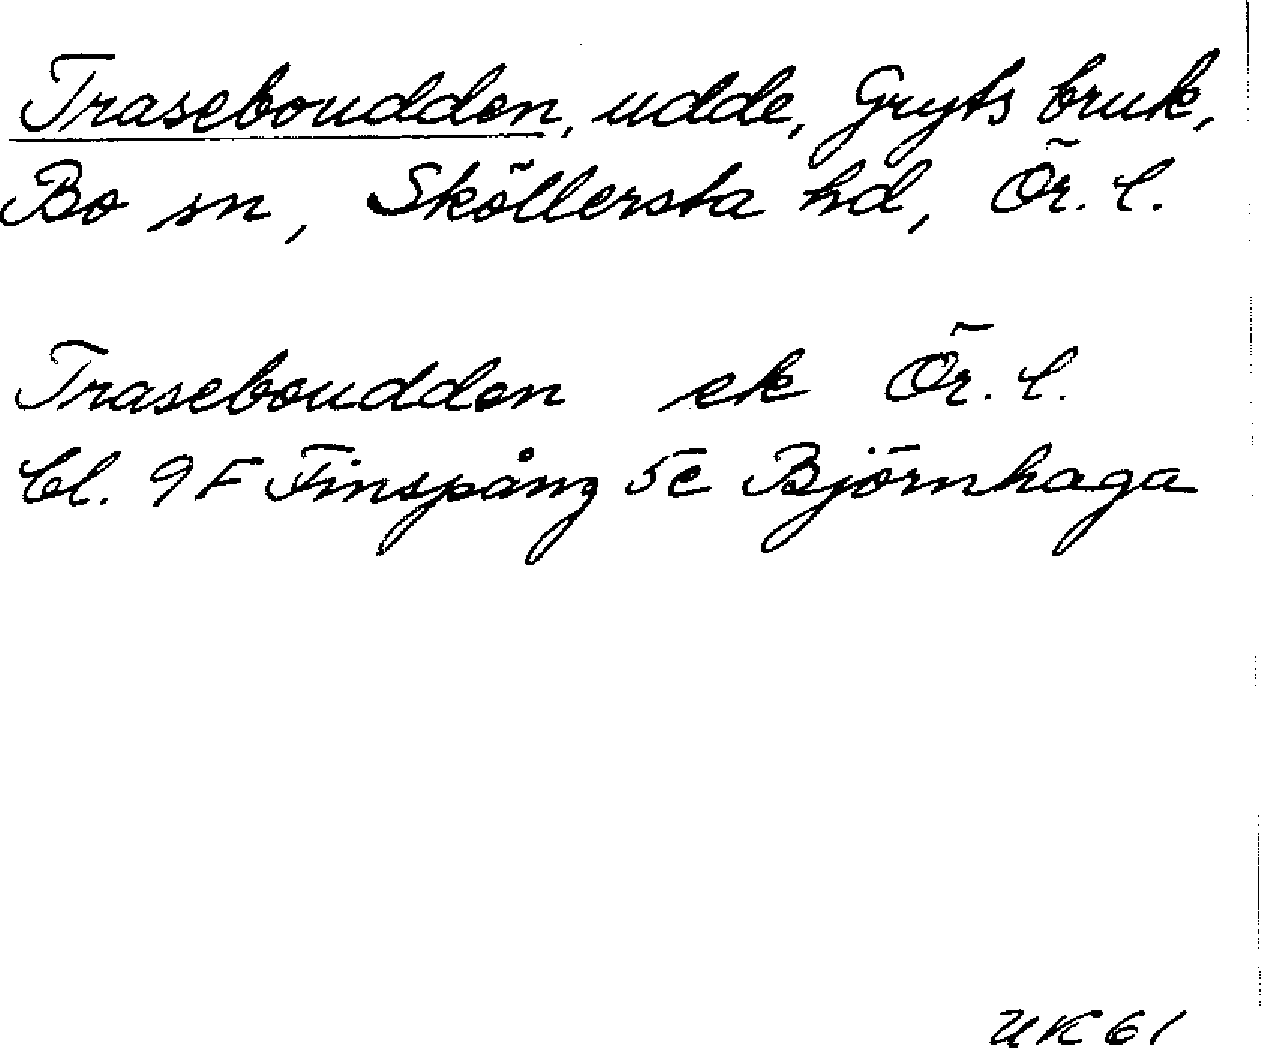 Traseboudden, udde, Gryts bruk,
Bo sn, Sköllersta hd, Ör. l.
Traseboudden ek Ör. l.
bl. 9F Finspång 5c Björnhaga
UK 61